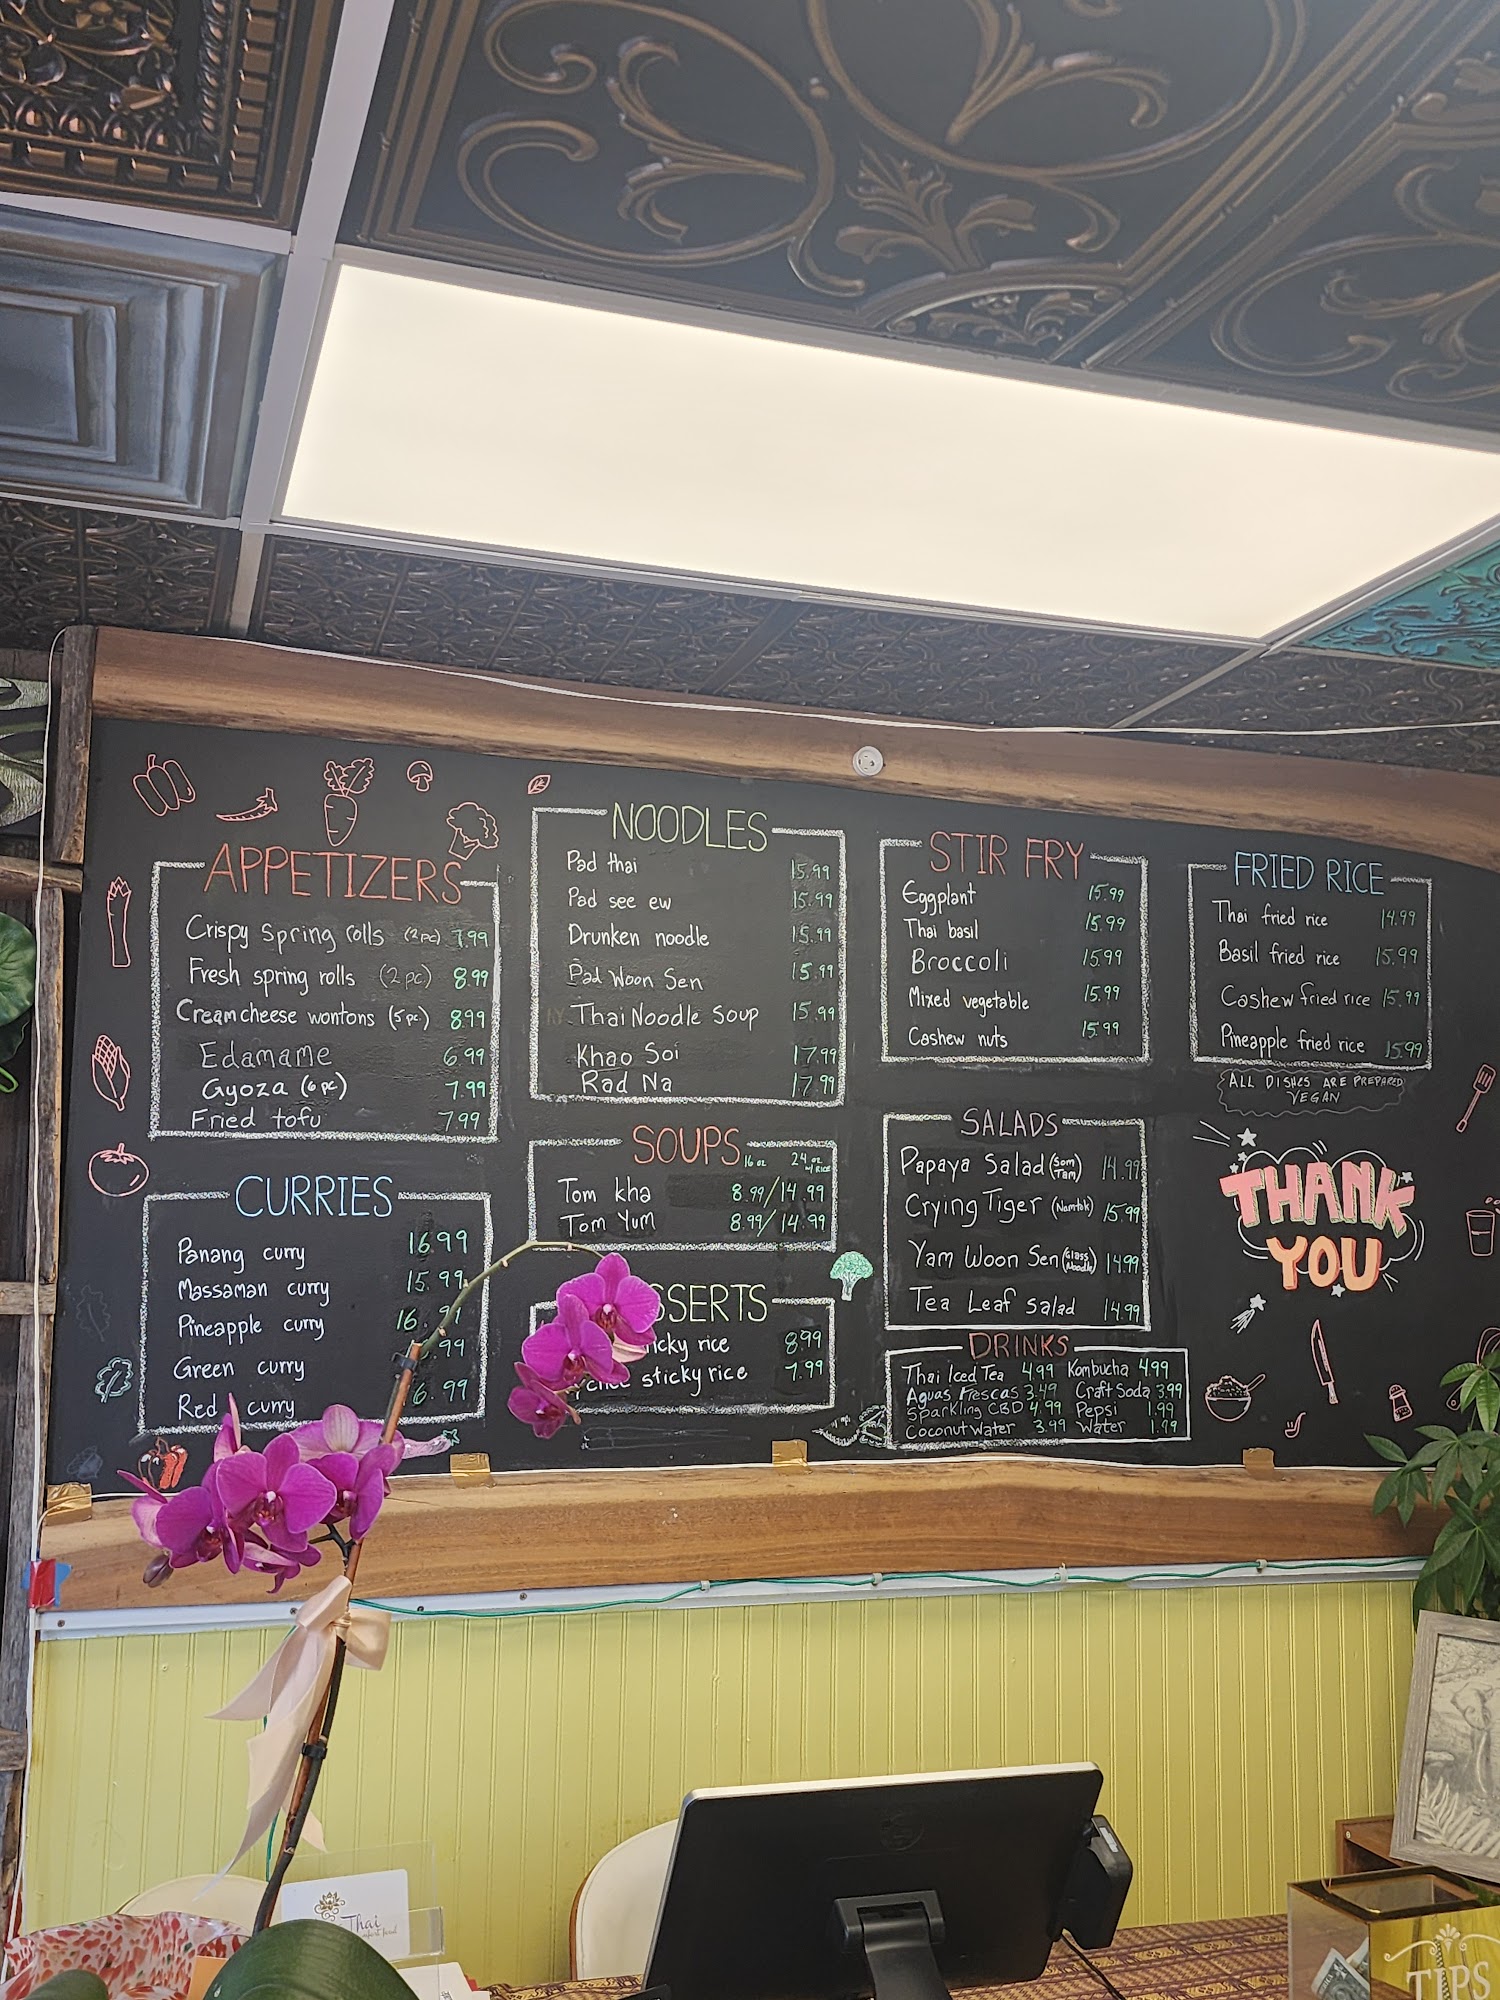 APPETIZERS
Crispy Spring rolls (2pc) 7.99
Fresh spring rolls (2pc) 8.99
Cream cheese wontons (5pc) 8.99
Edamame 6.99
Gyoza (6pc) 7.99
Fried tofu 7.99
CURRIES
Panang curry 16.99
Massaman curry 15.99
Pineapple curry 16.
Green curry .99
Red curry 6.99
NOODLES
Pad thai 15.99
Pad see ew 15.99
Drunken noodle 15.99
Pad Woon Sen 15.99
Thai Noodle Soup 15.99
Khao Soi 17.99
Rad Na 17.99
SOUPS 16 oz 24 oz w/ RICE
Tom Kha 8.99/14.99
Tom Yum 8.99/14.99
SSERTS
icky rice 8.99
sticky rice 7.99
STIR FRY
Eggplant 15.99
Thai basil 15.99
Broccoli 15.99
Mixed vegetable 15.99
Cashew nuts 15.99
SALADS
Papaya Salad (Som Tam) 14.99
Crying Tiger (Namtok) 15.99
Yam Woon Sen (Glass Noodle) 14.99
Tea Leaf Salad 14.99
DRINKS
Thai Iced Tea 4.99 Kombucha 4.99
Aguas Frescas 3.49 Craft Soda 3.99
Sparkling CBD 4.99 Pepsi 1.99
Coconut Water 3.99 Water 1.79
FRIED RICE
Thai fried rice 14.99
Basil fried rice 15.99
Cashew fried rice 15.99
Pineapple fried rice 15.99
ALL DISHES ARE PREPARED
VEGAN
THANK
YOU
Thai
TIPS